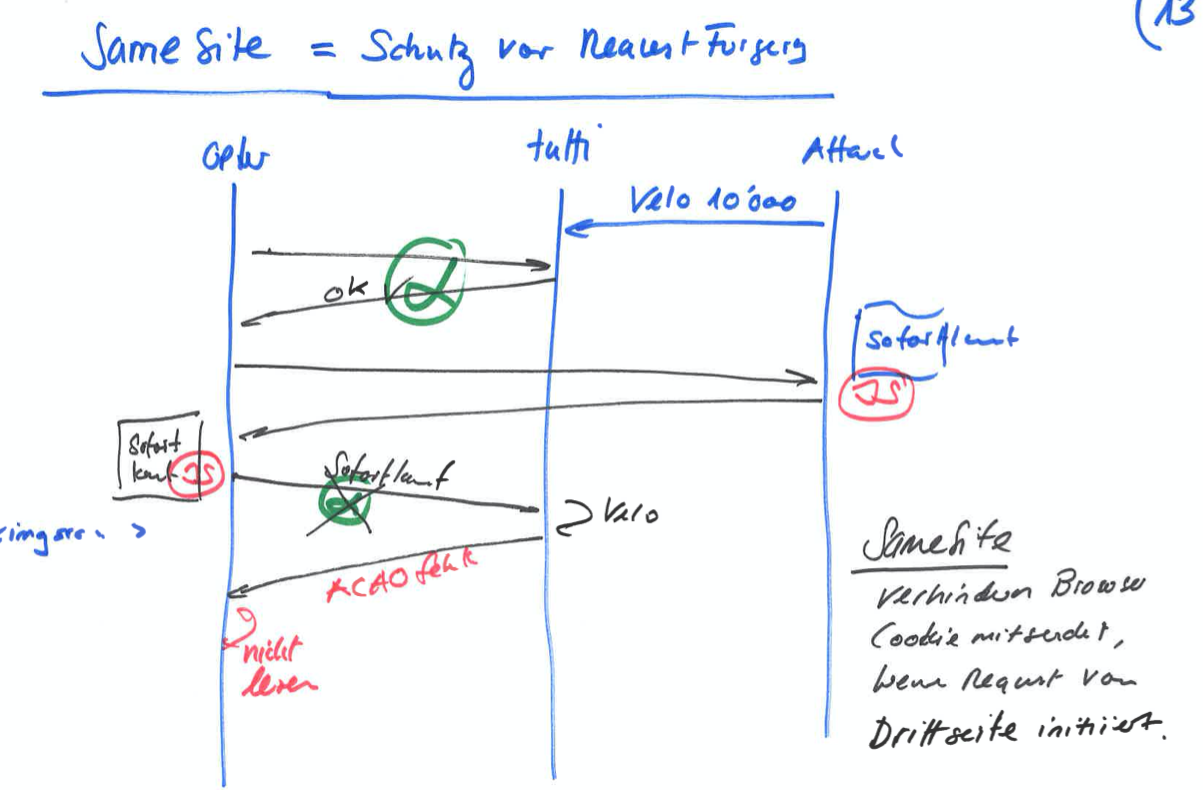 (13
SameSite = Schutz vor Request Forgery
Opfer
tutti
Attack
Velo 10'000
ok ✓
Sofort kauf
JS
Sofort
kauf JS
Sofortkauf
Velo
<img src >
ACAO fehlt
nicht
lesen
SameSite
verhindern Browser
Cookie mitsendet,
wenn Request von
Drittseite initiiert.